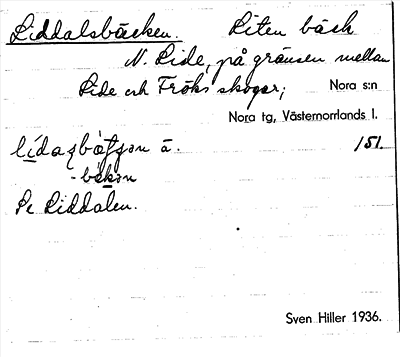 Liddalsbäcken. Liten bäck
N. Lide, på gränsen mellan
Lide och Fröks skogar; Nora s:n
Nora tg, Västernorrlands l.
151.
-bäkən
Se Liddalen.
Sven Hiller 1936.